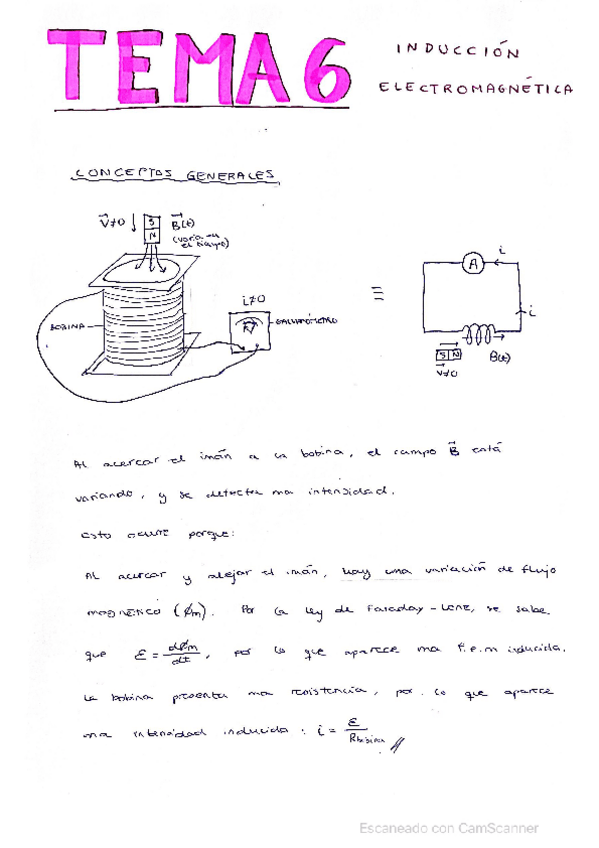 TEMA 6
INDUCCIÓN
ELECTROMAGNÉTICA
CONCEPTOS GENERALES
V≠0 ↓ S N B(t)
(varía en el tiempo)
i≠0
BOBINA
GALVANÓMETRO
≡
A
i
i
S N
V≠0
B(t)
Al acercar el imán a la bobina, el campo B está
variando, y se detecta una intensidad.
Esto ocurre porque:
Al acercar y alejar el imán, hay una variación de flujo
magnético (ϕm). Por la ley de Faraday-Lenz, se sabe
que ε = dϕm/dt, por lo que aparece una f.e.m inducida.
La bobina presenta una resistencia, por lo que aparece
una intensidad inducida: i = ε/Rbobina //
Escaneado con CamScanner